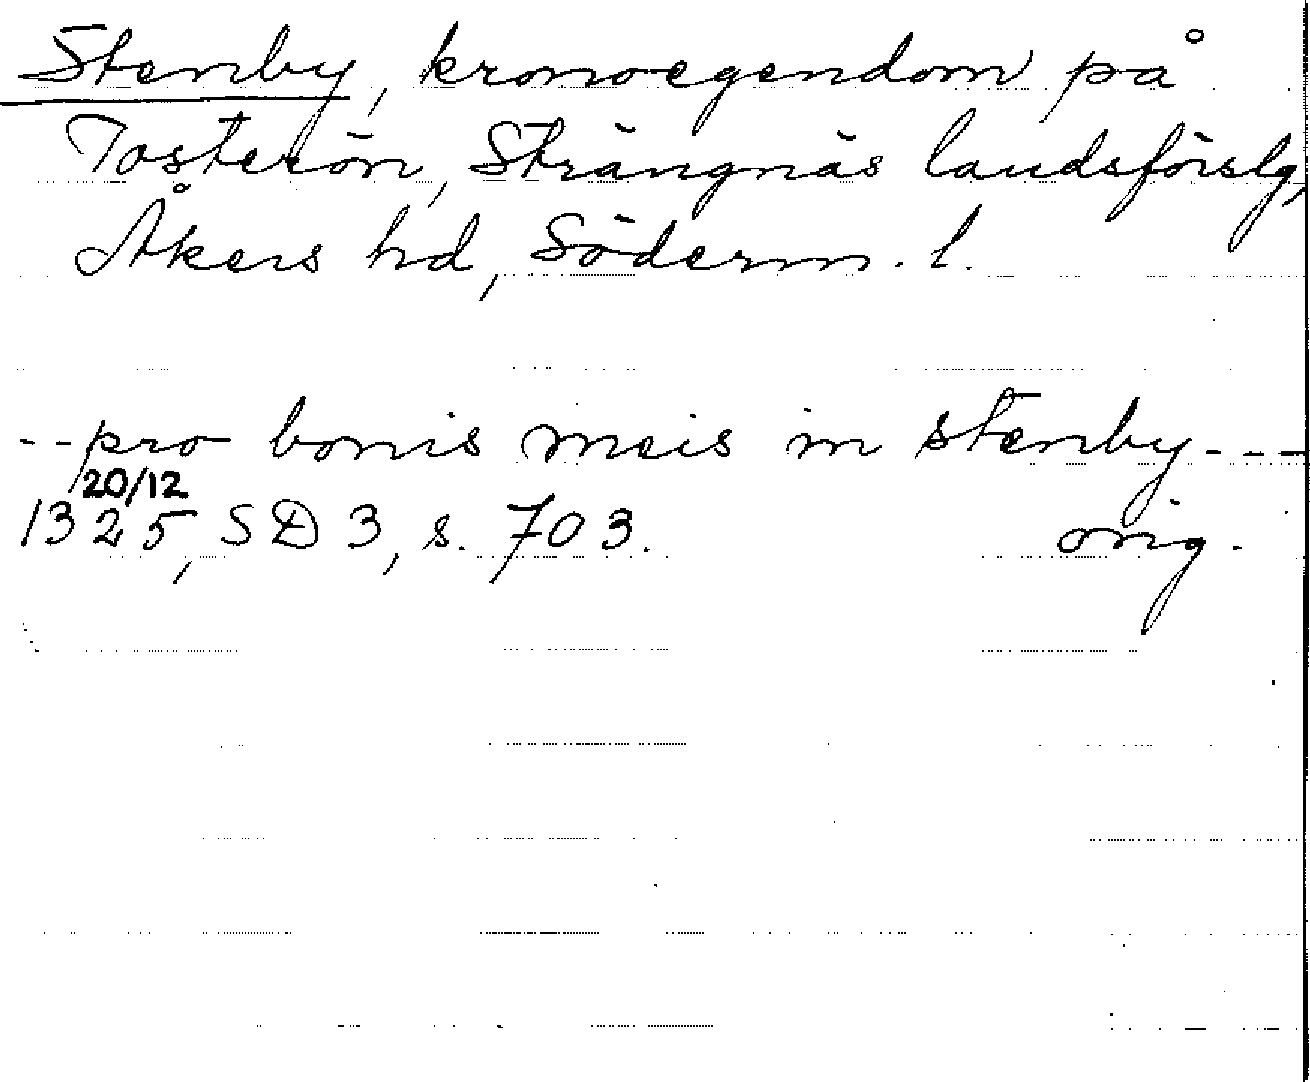 Stenby, kronoegendom på
Tosterön, Strängnäs landsförslg,
Åkers hd, Söderm. l.
--pro bonis meis in stenby---
20/12
1325, SD 3, s. 703. orig.